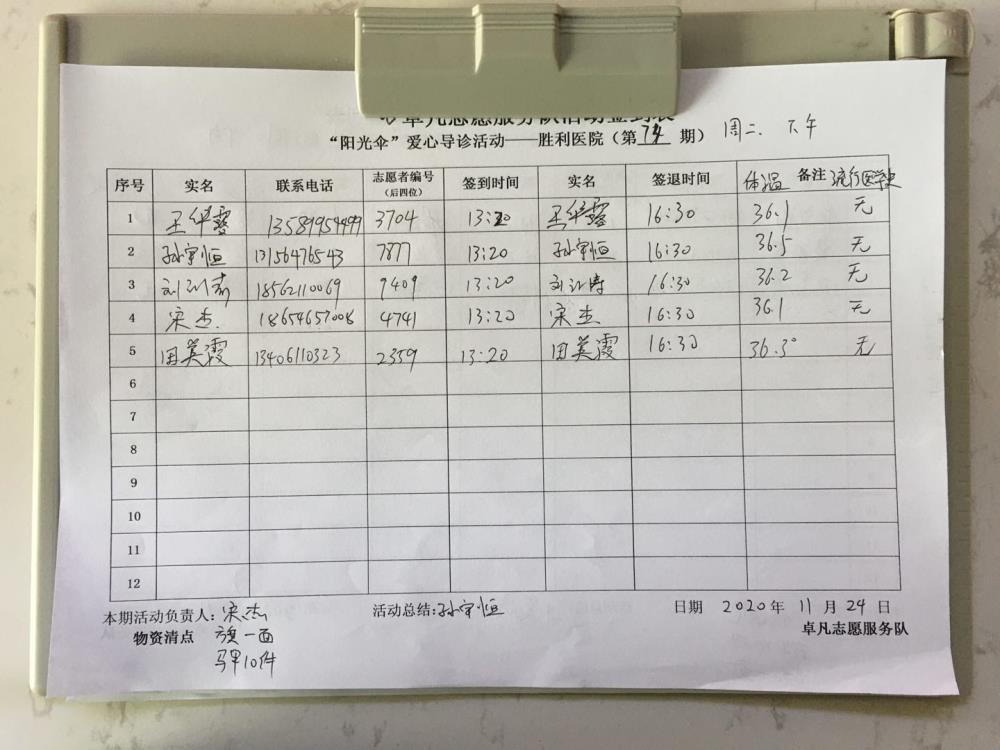 卓凡志愿服务队活动签到表
“阳光伞”爱心导诊活动——胜利医院（第74期） 周二、下午
序号 实名 联系电话 志愿者编号（后四位） 签到时间 实名 签退时间 体温 备注 流行医学史
1 王华露 13589954499 3704 13:20 王华露 16:30 36.1 无
2 孙宇恒 13156476543 7877 13:20 孙宇恒 16:30 36.5 无
3 18562110069 9409 13:20 16:30 36.2 无
4 宋杰. 18654657008 4741 13:20 宋杰 16:30 36.1 无
5 田英霞 13406110323 2359 13:20 田英霞 16:30 36.3° 无
6
7
8
9
10
11
12
本期活动负责人：宋杰 活动总结：孙宇恒 日期 2020年11月24日
物资清点 旗一面 卓凡志愿服务队
马甲10件